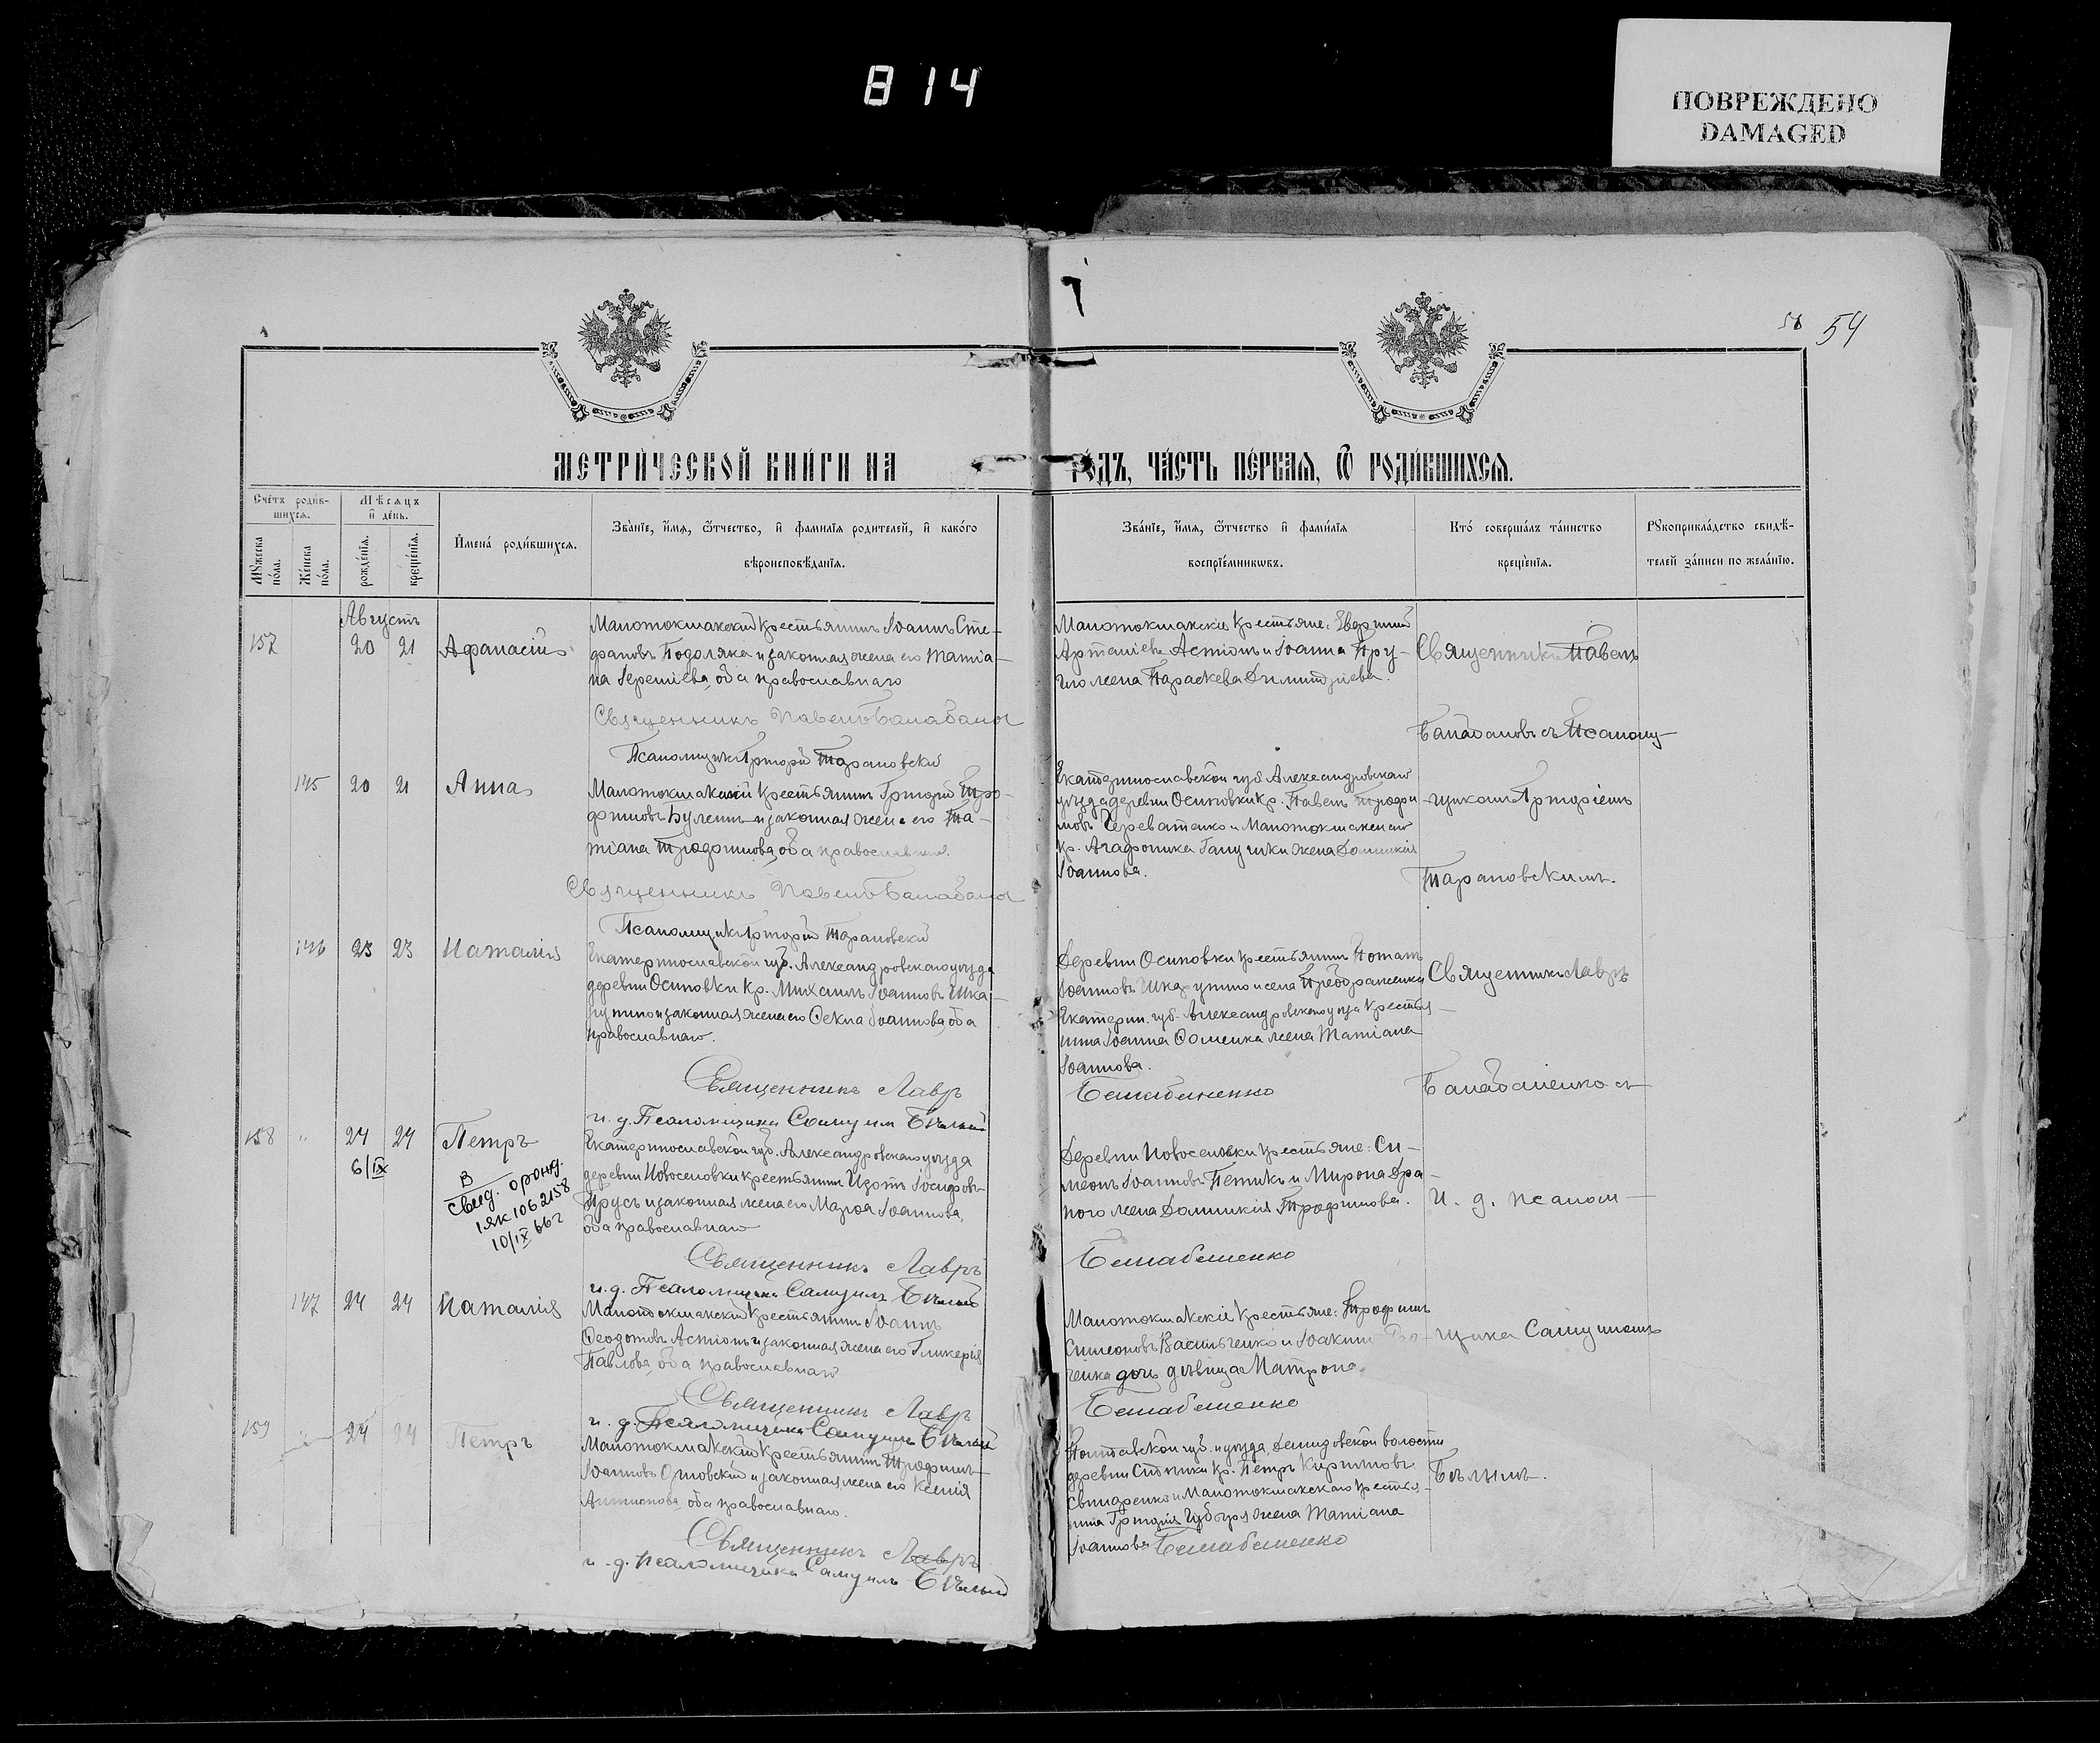 814
ПОВРЕЖДЕНО
DAMAGED
58 54
МЕТРИ́ЧЕСКОЙ КНИ́ГИ НА
ГО́ДЪ, ЧА́СТЬ ПЕ́РВАЯ, Ѿ РОДИ́ВШИХСЯ.
Сче́тъ роди́в-
шихся.
Мѣ́сяцъ
и҆ де́нь.
Мꙋ́жеска
по́ла.
Же́нска
по́ла.
рожде́нїя.
креще́нїя.
И҆мена̀ роди́вшихся.
Зва́нїе, и҆́мя, ѻ҆́тчество, и҆ фами́лїя роди́телей, и҆ како́гѡ
вѣроисповѣ́данїя.
Зва́нїе, и҆́мя, ѻ҆́тчество и҆ фами́лїя
воспрїе́мникѡвъ.
Кто́ соверша́лъ та́инство
креще́нїя.
Рꙋкоприкла́дство свидѣ́-
телей за́писи по жела́нїю.
Августъ
157 20 21 Афанасій
Малотокмакскій крестьянинъ Іоаннъ Сте-
фановъ Подоляка и законная жена его Татіа-
на Іереміева, оба православнаго
Священникъ Павелъ Балабанов
Псаломщикъ Григорій Тарановскій
Малотокмакскіе крестьяне:
Астіонъ и Іоанна Пру-
жена Параскева Димитріева.
Священникъ Павелъ
Балабановъ съ Псалом-
145 20 21 Анна
Малотокмакскій крестьянинъ Григорій Тро-
фимовъ и законная жена его Та-
тіана Трофимова, оба православнаго.
Священникъ Павелъ Балабанов
Псаломщикъ Григорій Тарановскій
Екатеринославской губ. Александровскаго
уѣзда деревни Осиповки кр. Павелъ Трофи-
мовъ Череватенко и Малотокмакскаго
кр. Агафоника жена Домникія
Іоаннова.
щикомъ Григоріемъ
Тарановскимъ.
146 23 23 Наталія
Екатеринославской губ. Александровскаго уѣзда
деревни Осиповки кр. Михаилъ Іоанновъ Шка-
рупило и законная жена его Ѳекла Іоаннова, оба
православнаго.
Священникъ Лавръ
и. д. Псаломщика Самуилъ Бѣлый
Деревни Осиповки крестьянинъ Потапъ
Іоанновъ Шкарупило и села Преображенки
Екатерин. губ. Александровскаго уѣзда крестья-
нина Іоанна жена Татіана
Іоаннова.
Балабаненко
Священникъ Лавръ
Балабаненко съ
158 " 24 24 Петръ
6/IX
В
свид. о рожд.
1ЯК 1062158
10/IX 66г
Екатеринославской губ. Александровскаго уѣзда
деревни Новоселовки крестьянинъ Изотъ Іосифовъ
Прусъ и законная жена его Іоаннова,
оба православнаго
Священникъ Лавръ
и. д. Псаломщика Самуилъ Бѣлый
Деревни Новоселовки крестьяне: Си-
меонъ Іоанновъ Петикъ и Мирона Дра-
ного жена Домникія Трофимова.
Балабаненко
И. д. псалом-
147 24 24 Наталія
Малотокмакскій крестьянинъ Іоаннъ
Ѳеодотовъ Астіонъ и законная жена его Гликерія
Павлова, оба православнаго
Священникъ Лавръ
и. д. Псаломщика Самуилъ Бѣлый
Малотокмакскіе крестьяне: Трофимъ
Симеоновъ Васильченко и Іоакима
ченка дочь дѣвица Матрона.
Балабаненко
щика Самуиломъ
159 24 24 Петръ
Малотокмакскій крестьянинъ Трофимъ
Іоанновъ Орловскій и законная жена его Ксенія
Антонова, оба православнаго.
Священникъ Лавръ
и. д. псаломщика Самуилъ Бѣлый
Полтавской губ. и уѣзда, Демидовской волости
деревни кр. Петръ Кирилловъ
Свинаренко и Малотокмакскаго крестья-
нина Григорія жена Татіана
Іоаннова Балабаненко
Бѣлымъ.